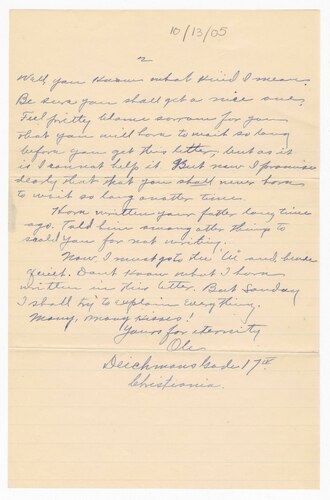 10/13/05
2
Well, you know what kind I mean.
Be sure you shall get a nice one.
Feel pretty blame sorrow for you
that you will have to wait so long
before you get this letter, but as it
is I cannot help it. But now I promise
dearly that that you shall never have
to wait so long another time.
Have written your father long time
ago. Told him among other things to
scold you for not writing.
Now I must go to the and
quiet. Dont know what I have
written in this letter. But Sunday
I shall try to explain everything.
Many, many kisses!
Yours for eternity
Ole
Deichmans Gade 17
Christiania.